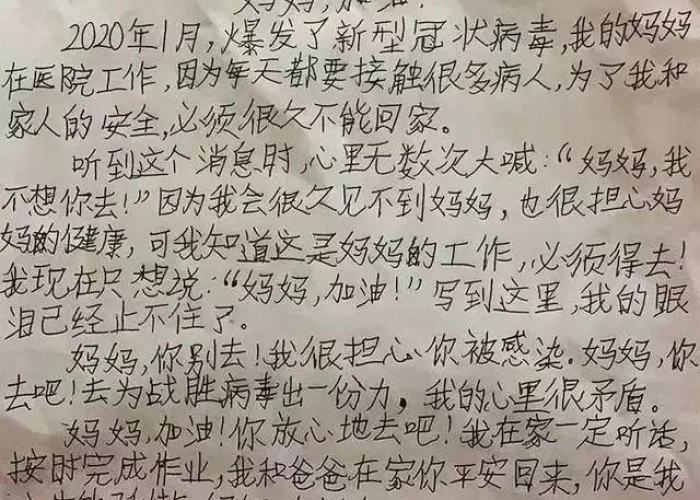 妈妈,加油!
2020年1月,爆发了新型冠状病毒,我的妈妈
在医院工作,因为每天都要接触很多病人,为了我和
家人的安全,必须很久不能回家。
听到这个消息时,心里无数次大喊:“妈妈,我
不想你去!”因为我会很久见不到妈妈,也很担心妈
妈的健康,可我知道这是妈妈的工作,必须得去!
我现在只想说:“妈妈,加油!”写到这里,我的眼
泪已经止不住了。
妈妈,你别去!我很担心你被感染.妈妈,你
去吧!去为战胜病毒出一份力,我的心里很矛盾。
妈妈,加油!你放心地去吧!我在家一定听话,
按时完成作业,我和爸爸在家你平安回来,你是我